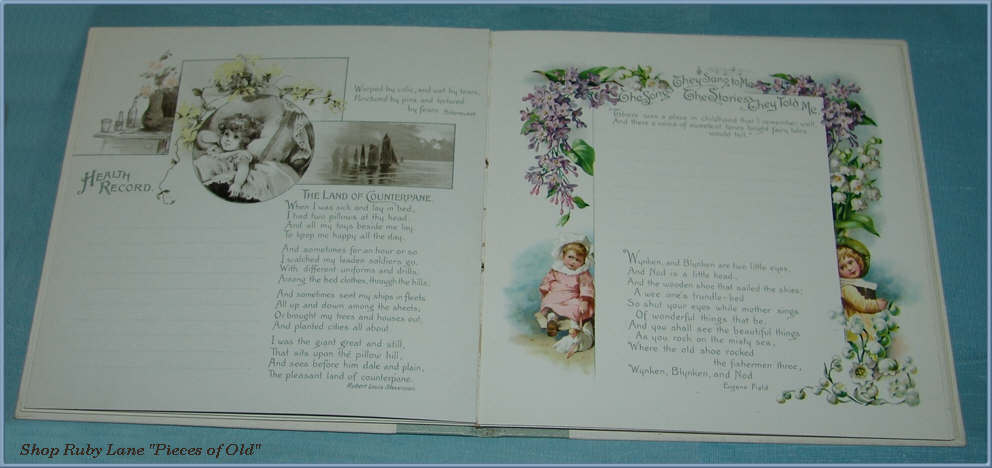 Warped by colic, and wet by tears,
Punctured by pins, and tortured
by fears Stevenson
HEALTH
RECORD.
THE LAND OF COUNTERPANE.
When I was sick and lay in bed,
I had two pillows at thy head.
And all my toys beside me lay
To keep me happy all the day.
And sometimes for an hour or so
I watched my leaden soldiers go,
With different uniforms and drills,
Among the bed clothes, through the hills;
And sometimes sent my ships in fleets
All up and down among the sheets;
Or bought my trees and houses out,
And planted cities all about.
I was the giant great and still,
That sits upon the pillow hill,
And sees before him dale and plain,
The pleasant land of counterpane.
Robert Louis Stevenson
The Song They Sang to Me
The Stories They Told Me.
"There was a place in childhood that I remember well
And there a voice of sweetest tone bright fairy tales
would tell."
"Wynken, and Blynken are two little eyes,
And Nod is a little head-
And the wooden shoe that sailed the skies;
A wee one's trundle-bed
So shut your eyes while mother sings
Of wonderful things that be,
And you shall see the beautiful things
As you rock on the misty sea,
Where the old shoe rocked
the fishermen three,
Wynken, Blynken, and Nod
Eugene Field
Shop Ruby Lane "Pieces of Old"